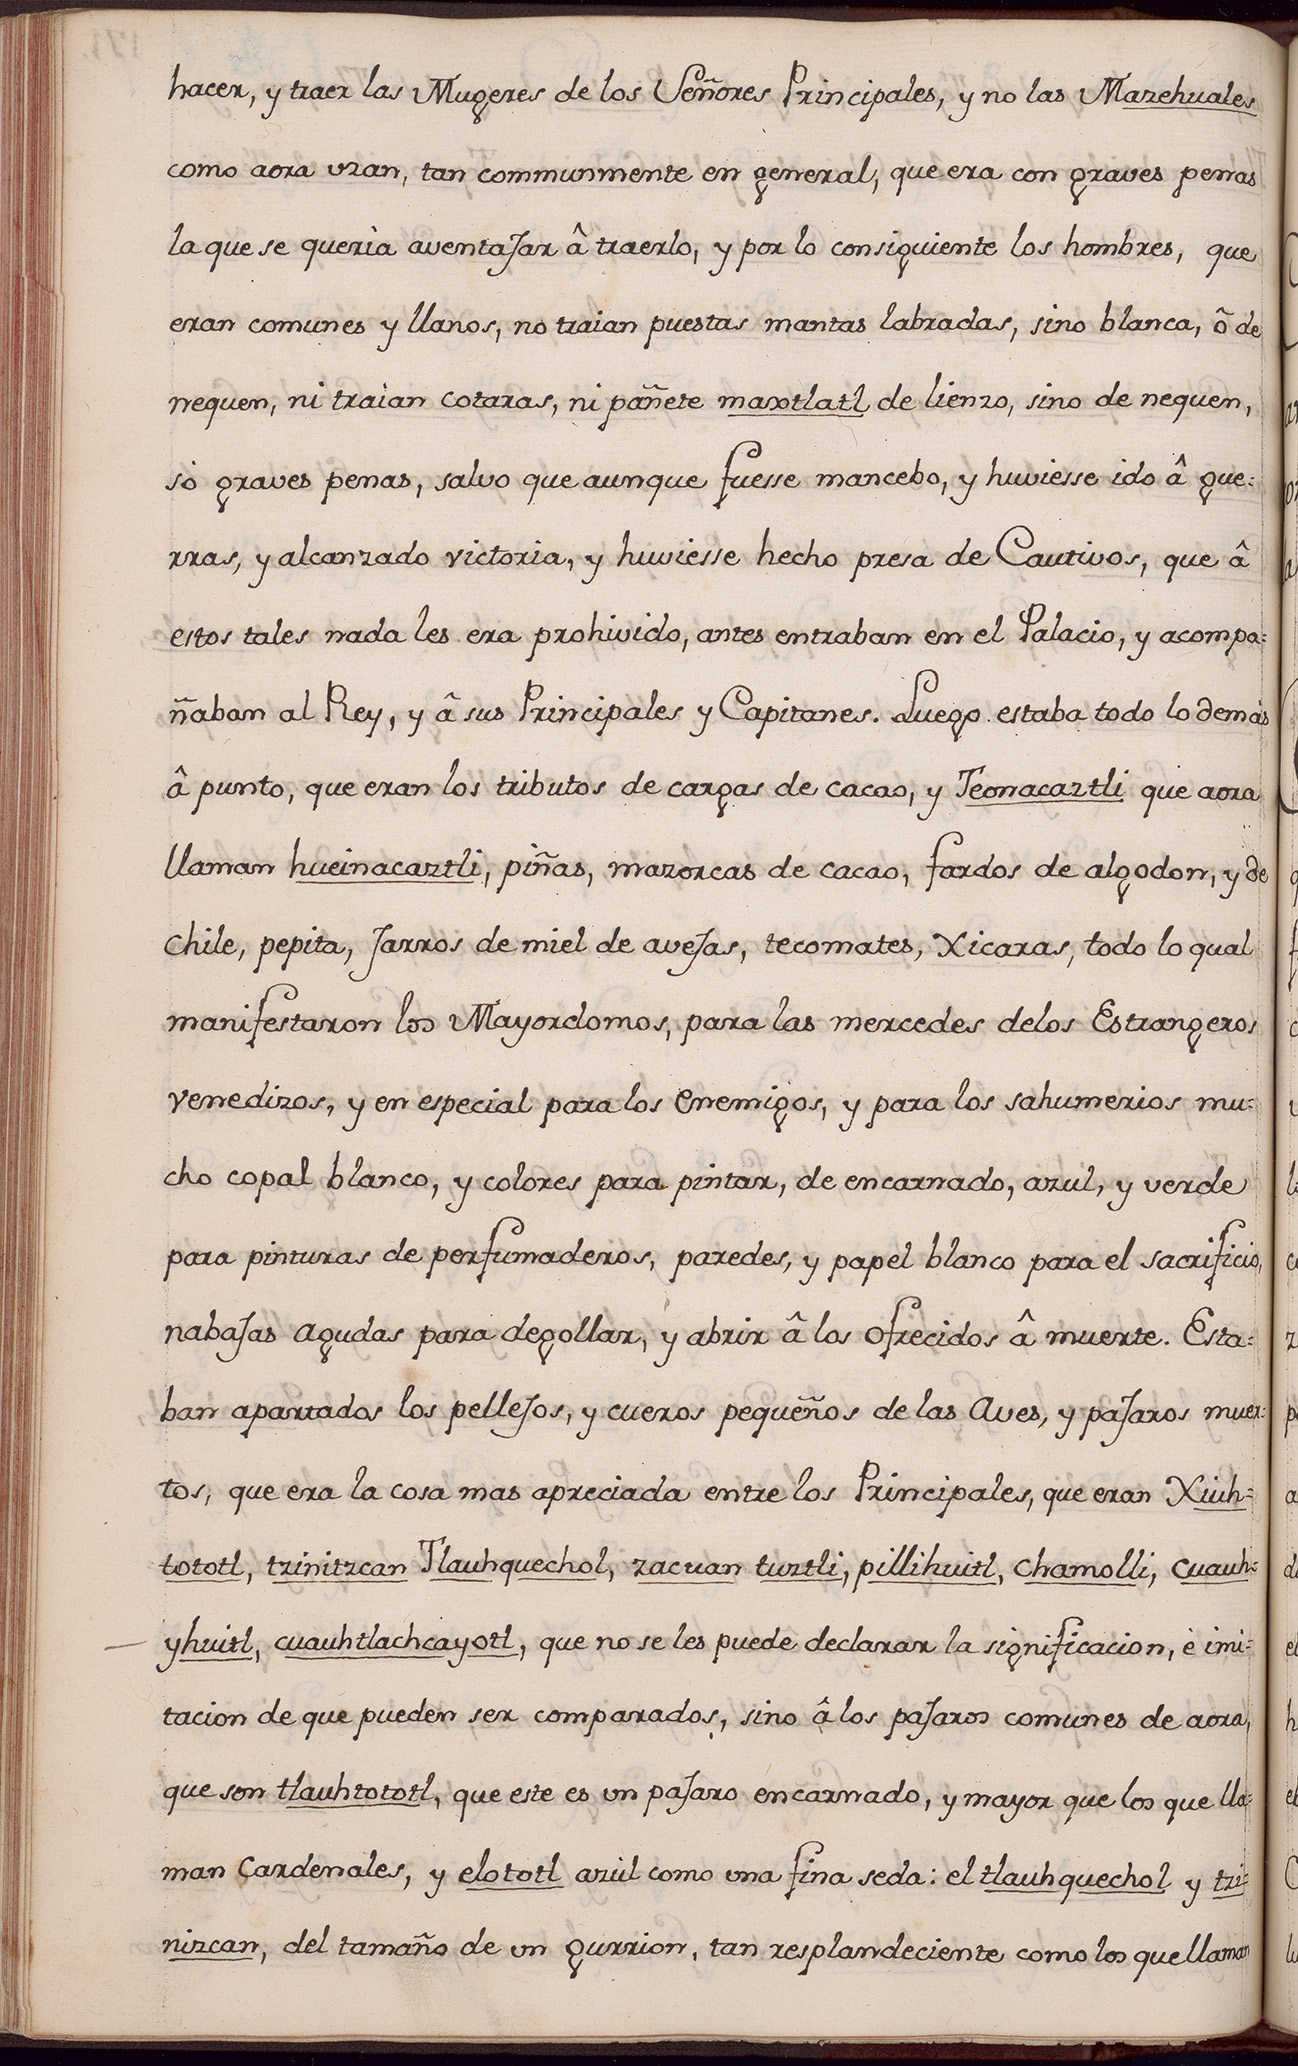 hacer, y traer las Mugeres de los Señores Principales, y no las Mazehuales
como aora vzan, tan communmente en general, que era con graves penas
la que se querìa aventaJar â traerlo, y por lo consiguiente los hombres, que
eran comunes y llanos, no traian puestas mantas labradas, sino blanca, õ de
nequen, ni traìan cotaras, ni pañete maxtlatl de lienzo, sino de nequen,
sò graves penas, salvo que aunque fuesse mancebo, y huviesse ido â gue=
rras, y alcanzado victoria, y huviesse hecho presa de Cautivos, que â
estos tales nada les era prohivido, antes entraban en el Palacio, y acompa=
ñaban al Rey, y â sus Principales y Capitanes. Luego estaba todo lo demàs
â punto, que eran los tributos de cargas de cacao, y Teonacaztli que aora
llaman hueinacaztli, piñas, mazorcas de cacao, fardos de algodon, y de
chile, pepita, Jarros de miel de aveJas, tecomates, Xicaras, todo lo qual
manifestaron los Mayordomos, para las mercedes delos Estrangeros
venedizos, y en especial para los enemigos, y para los sahumerios mu=
cho copal blanco, y colores para pintar, de encarnado, azul, y verde
para pinturas de perfumaderos, paredes, y papel blanco para el sacrificio,
nabaJas agudas para degollar, y abrir â los ofrecidos â muerte. Esta=
ban apartados los pelleJos, y cueros pequeños de las Aves, y paJaros muer=
tos, que era la cosa mas apreciada entre los Principales, que eran Xiuh=
tototl, tzinitzcan Tlauhquechol, zacuan tuztli, pillihuitl, chamolli, cuauh=
yhuitl, cuauhtlachcayotl, que no se les puede declarar la significacion, è imi=
tacion de que pueden ser comparados, sino â los paJaros comunes de aora,
que son tlauhtototl, que este es un paJaro encarnado, y mayor que los que lla=
man Cardenales, y elototl azùl como una fina seda: el tlauhquechol y tzi=
nizcan, del tamaño de un gurrion, tan resplandeciente como los que llaman